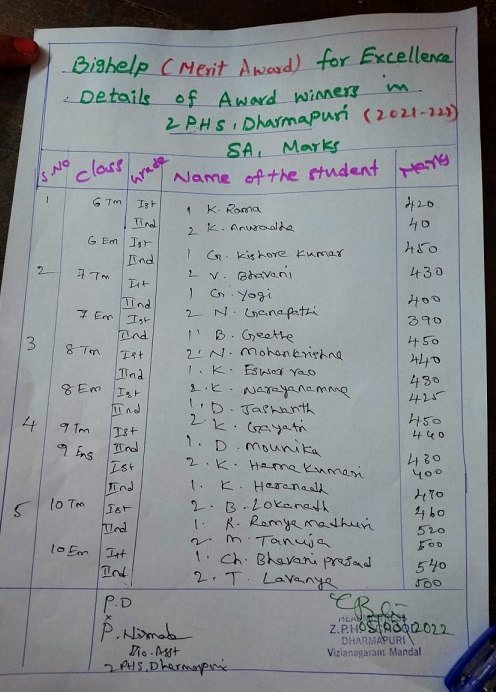 Bighelp (Merit Award) for Excellence
Details of Award winners in
ZPHS, Dharmapuri (2021-22)
SA, Marks
S.No Class Grade Name of the student Marks
1 6 Tm Ist 1 K. Rama 420
IInd 2 K. Anuradha 40
6 Em Ist 1 G. Kishore Kumar 450
IInd 2 V. Bhavani 430
2 7 Tm Ist 1 G. Yogi 400
IInd 2 N. Ganapathi 390
7 Em Ist 1 B. Geetha 450
IInd 2 N. Mohankrishna 440
3 8 Tm Ist 1. K. Eswar rao 430
IInd 2. K. Narayanamma 425
8 Em Ist 1. D. Jashwanth 450
IInd 2 K. Gayatri 440
4 9 Tm Ist 1. D. Mounika 430
IInd 2. K. Hema Kumari 400
9 Eng Ist 1. K. Haranadh 470
IInd 2. B. Lokanadh 460
5 10 Tm Ist 1. R. Ramya madhuri 520
IInd 2. M. Tanuja 500
10 Em Ist 1. Ch. Bhavani prasad 540
IInd 2. T. Lavanya 500
P.D
P. Nirmala
Bio. Asst
ZPHS. Dharmapuri
Z.P.H.S
DHARMAPURI
Vizianagaram Mandal